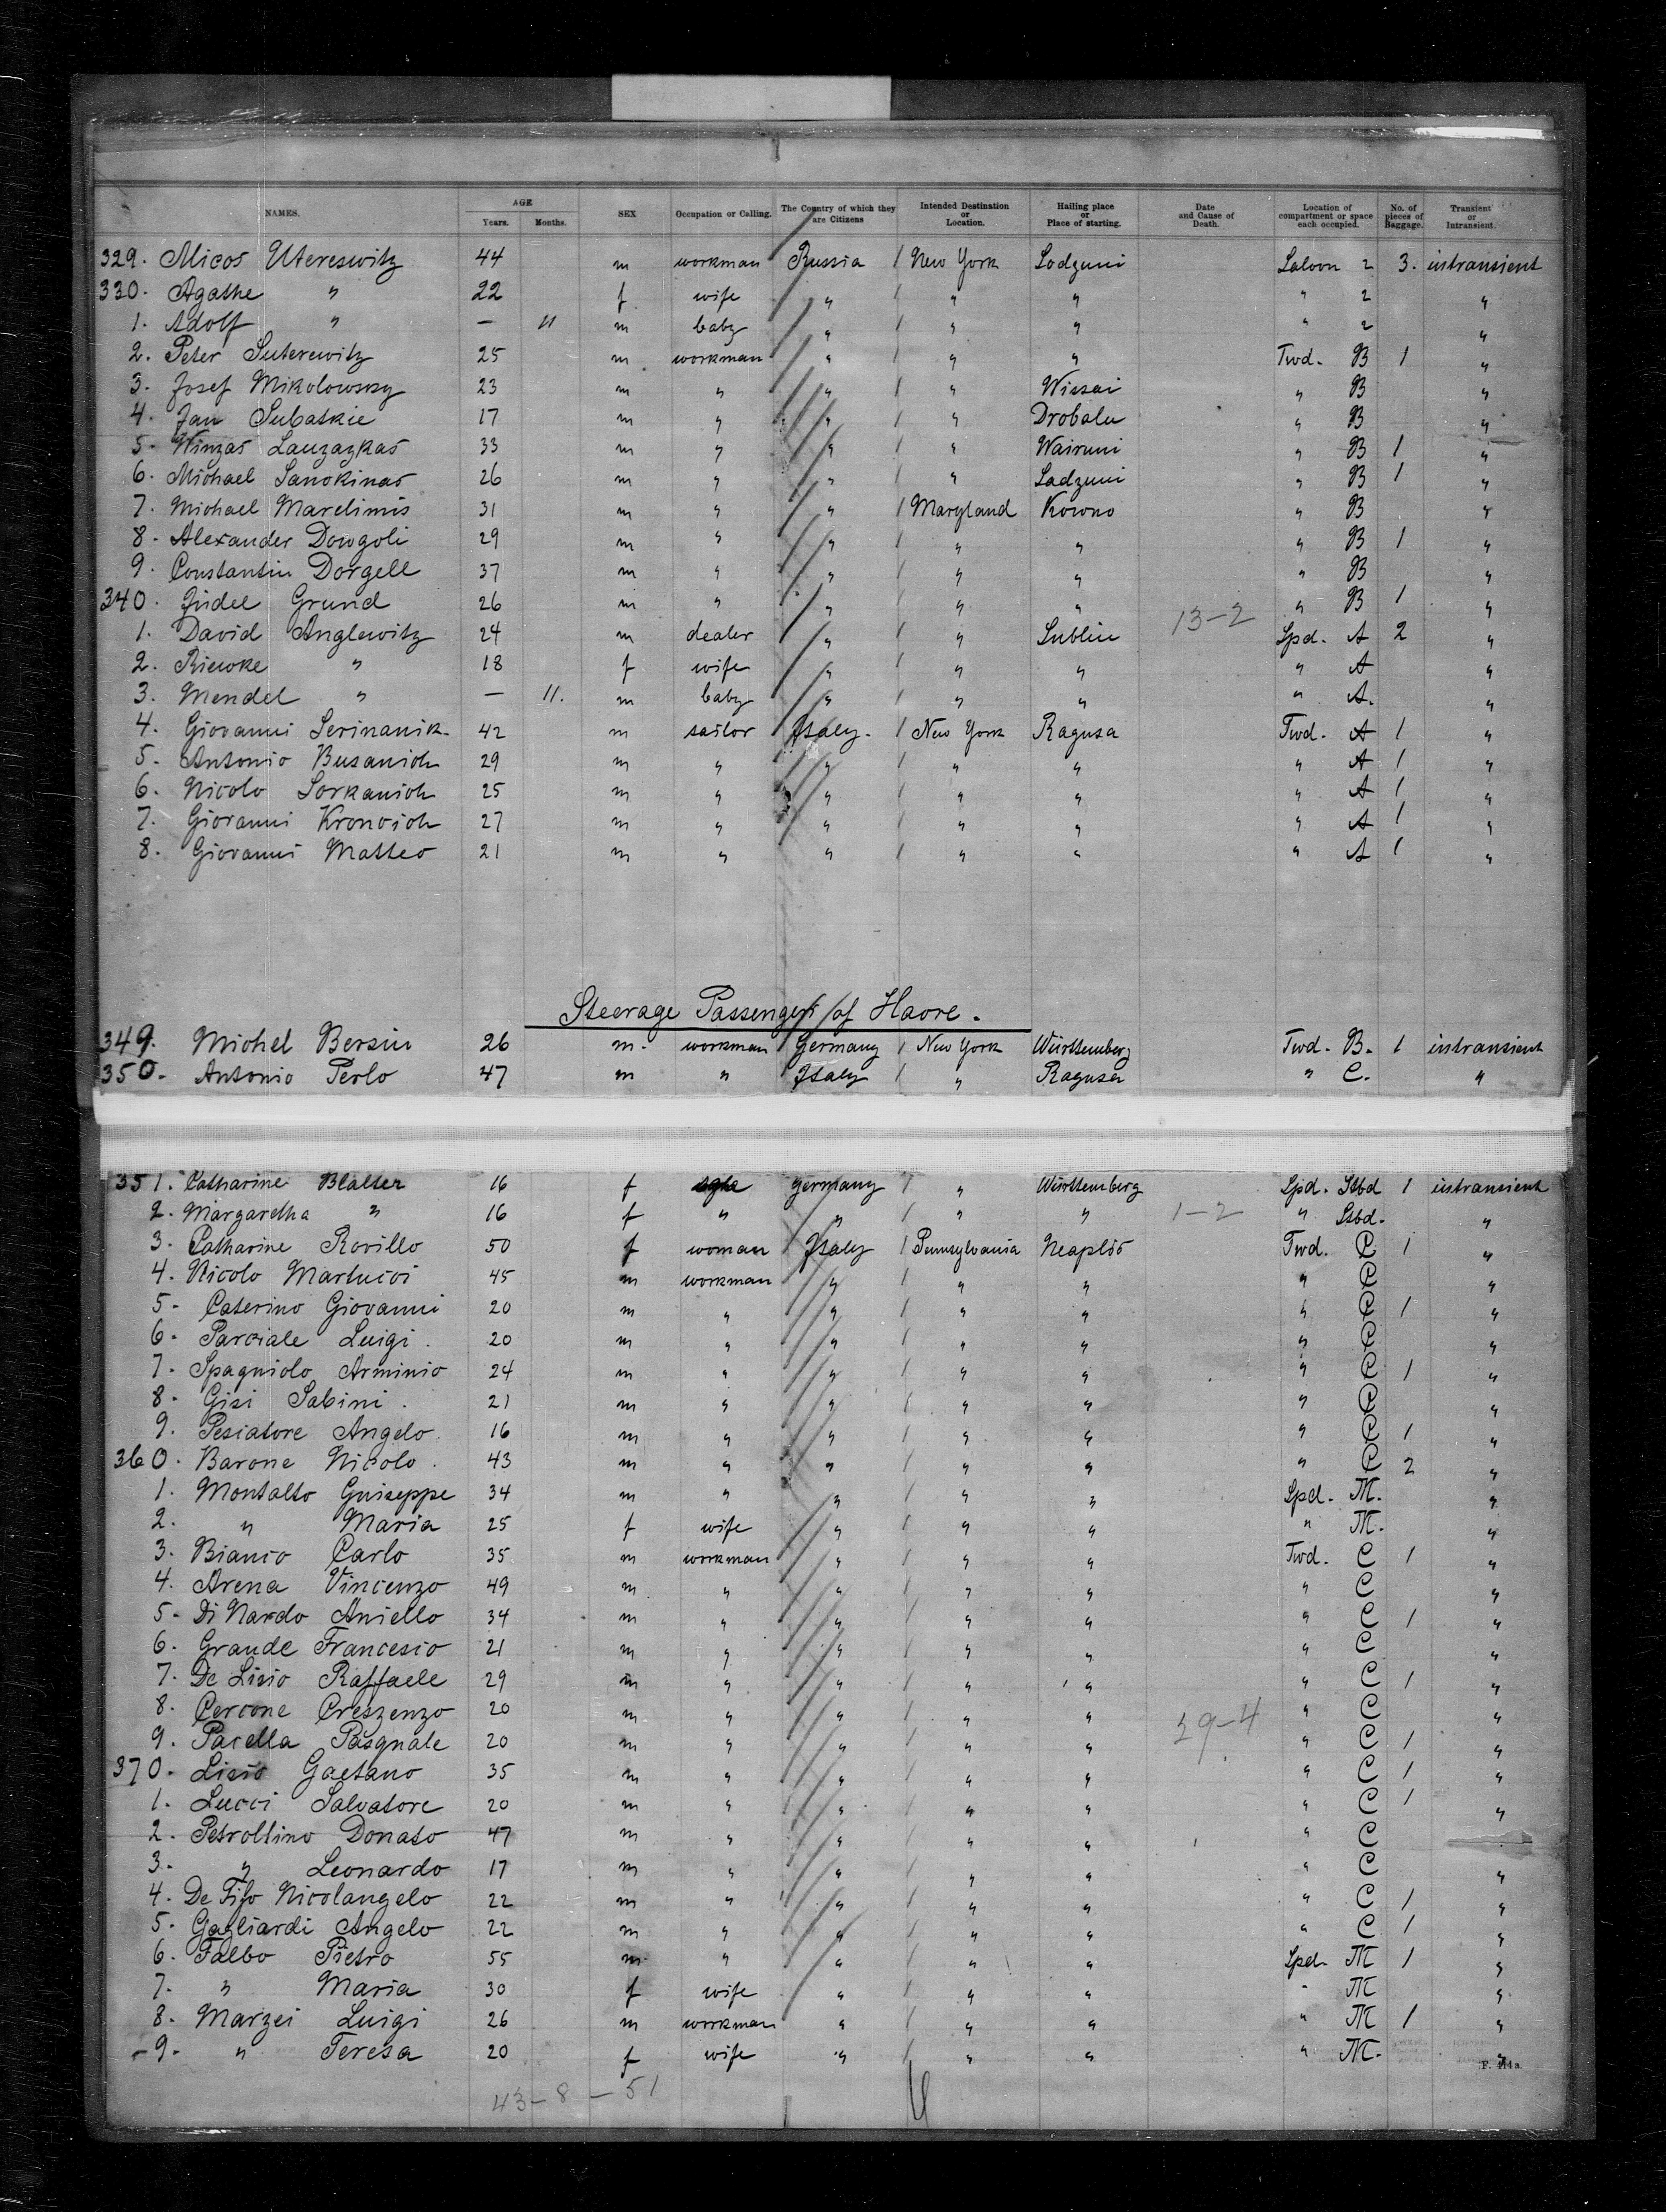 NAMES. AGE Years. Months. SEX Occupation or Calling. The Country of which they are Citizens Intended Destination or Location. Hailing place or Place of starting. Date and Cause of Death. Location of compartment or space each occupied. No. of pieces of Baggage. Transient or Intransient.
329. Micos Utereswitz 44 m workman Russia / New York Lodzuni Saloon 2 3. intransient
330. Agathe " 22 f wife " / " " " 2 "
1. Adolf " — 11 m baby " / " " " 2 "
2. Peter Suterewitz 25 m workman " / " " Twd. B 1 "
3. Josef Mikolowsky 23 m " " / " Wissai " B "
4. Jan Subatkie 17 m " " / " Drobalu " B "
5. Winzas Lauzazkas 33 m " " / " Wairuni " B 1 "
6. Michael Sanokinas 26 m " " / " Ladzuni " B 1 "
7. Michael Marelimis 31 m " " / Maryland Kowno " B "
8. Alexander Dowgoli 29 m " " / " " " B 1 "
9. Constantin Dorgell 37 m " " / " " " B "
340. Judel Grund 26 m " " / " " " B 1 "
13-2
1. David Anglewitz 24 m dealer " / " Lublin Spd. A 2 "
2. Riewke " 18 f wife " / " " " A "
3. Mendel " — 11. m baby " / " " " A. "
4. Giovanni Serinanik. 42 m sailor Italy. / New York Ragusa Twd. A 1 "
5. Antonio Busanich 29 m " " / " " " A 1 "
6. Nicolo Sorkanich 25 m " " / " " " A 1 "
7. Giovanni Kronoich 27 m " " / " " " A 1 "
8. Giovanni Matteo 21 m " " / " " " A 1 "
Steerage Passengers of Havre.
349. Michel Bersin 26 m. workman Germany / New York Württemberg Twd. B. 1 intransient
350. Antonio Perlo 47 m " Italy / " Ragusa " C. "
351. Catharine Blatter 16 f Germany / " Württemberg Spd. Stbd 1 intransient
2. Margaretha " 16 f " " / " " 1-2 " Stbd. "
3. Catharine Rovillo 50 f woman Italy / Pennsylvania Neaplis Twd. C 1 "
4. Nicolo Martucci 45 m workman " / " " " C "
5. Caterino Giovanni 20 m " " / " " " C 1 "
6. Parciale Luigi. 20 m " " / " " " C "
7. Spagniolo Arminio 24 m " " / " " " C 1 "
8. Gisi Sabini. 21 m " " / " " " C "
9. Pesiatore Angelo. 16 m " " / " " " C 1 "
360. Barone Nicolo. 43 m " " / " " " C 2 "
1. Montalto Guiseppe 34 m " " / " " Spd. M. "
2. " Maria 25 f wife " / " " " M. "
3. Bianco Carlo 35 m workman " / " " Twd. C 1 "
4. Arena Vincenzo 49 m " " / " " " C "
5. Di Nardo Aniello 34 m " " / " " " C 1 "
6. Grande Francesco 21 m " " / " " " C "
7. De Lisio Raffaele 29 m " " / " " " C 1 "
8. Cercone Creszenzo 20 m " " / " " " C "
39-4
9. Pacella Pasquale 20 m " " / " " " C 1 "
370. Lisio Gaetano 35 m " " / " " " C 1 "
1. Lucci Salvatore 20 m " " / " " " C 1 "
2. Petrollino Donato 47 m " " / " " " C
3. " Leonardo 17 m " " / " " " C "
4. De Fifo Nicolangelo 22 m " " / " " " C 1 "
5. Gagliardi Angelo 22 m " " / " " " C 1 "
6. Falbo Pietro 55 m. " " / " " Spd. M 1 "
7. " Maria 30 f wife " / " " " M "
8. Marzei Luigi 26 m workman " / " " " M 1 "
9. " Teresa 20 f wife " / " " " M. "
43-8-51